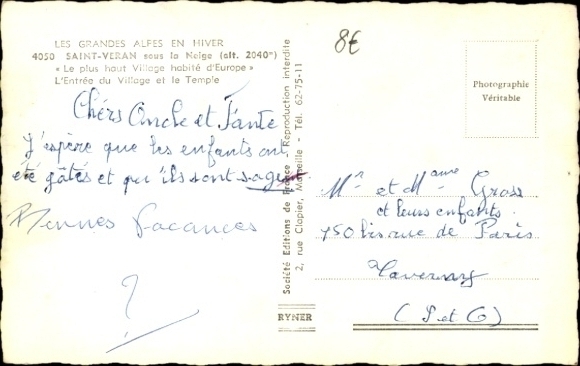 LES GRANDES ALPES EN HIVER
4050 SAINT-VERAN sous la Neige (alt. 2040m)
« Le plus haut Village habité d'Europe »
L'Entrée du Village et le Temple
Chérs Oncle et Tante
J'espère que les enfants ont
été gâtés et qu'ils sont sages
Bonnes Vacances
?
Société Editions de France - Reproduction interdite
2, rue Clapier, Marseille - Tél. 62-75-11
RYNER
8€
Photographie
Véritable
Mr et Mame Gross
et leurs enfants
150 bis rue de Paris
Taverny
(S et O)